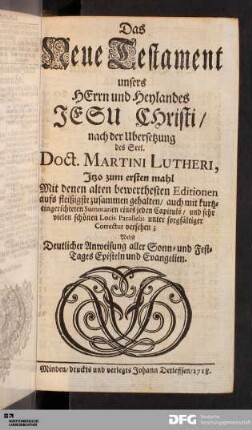 Das
Neue Testament
unsers
HErrn und Heylandes
JESU CHristi/
nach der Ubersetzung
des Seel.
Doct. MARTINI LUTHERI,
Itzo zum ersten mahl
Mit denen alten bewerthesten Editionen
aufs fleißigste zusammen gehalten/ auch mit kurtz-
eingerichteten Summarien eines jeden Capituls/ und sehr
vielen schönen Locis Parallelis unter sorgfältiger
Correctur versehen;
Nebst
Deutlicher Anweisung aller Sonn- und Fest-
Tages Episteln und Evangelien.
Minden/ druckts und verlegts Johann Detleffsen/ 1718.
WÜRTTEMBERGISCHE
LANDESBIBLIOTHEK
DFG
Deutsche
Forschungsgemeinschaft